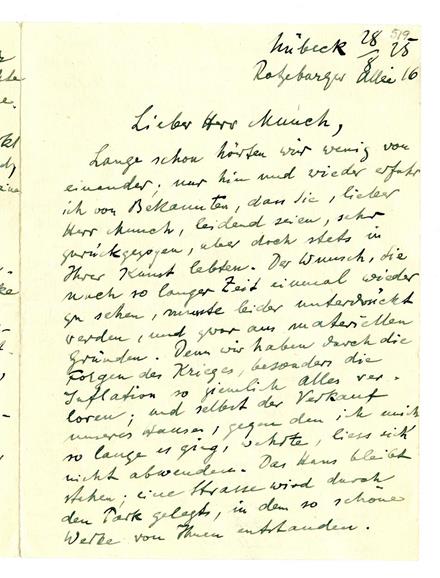 Lübeck 28/8 25
Ratzeburger Allee 16
Lieber Herr Munch,
Lange schon hörten wir wenig von
einander; nur hin und wieder erfuhr
ich von Bekannten, dass Sie, lieber
Herr Munch, leidend seien, sehr
zurückgezogen, aber doch stets in
Ihrer Kunst lebten. Der Wunsch, Sie
nach so langer Zeit einmal wieder
zu sehen, musste leider unterdrückt
werden, und zwar aus materiellen
Gründen. Denn wir haben durch die
Folgen des Krieges, besonders die
Inflation so ziemlich alles ver-
loren; und selbst der Verkauf
unseres Hauses, gegen den ich mich
so lange es ging, wehrte, liess sich
nicht abwenden. Das Haus bleibt
stehen; eine Strasse wird durch
den Park gelegt, in dem so schöne
Werke von Ihnen entstanden.